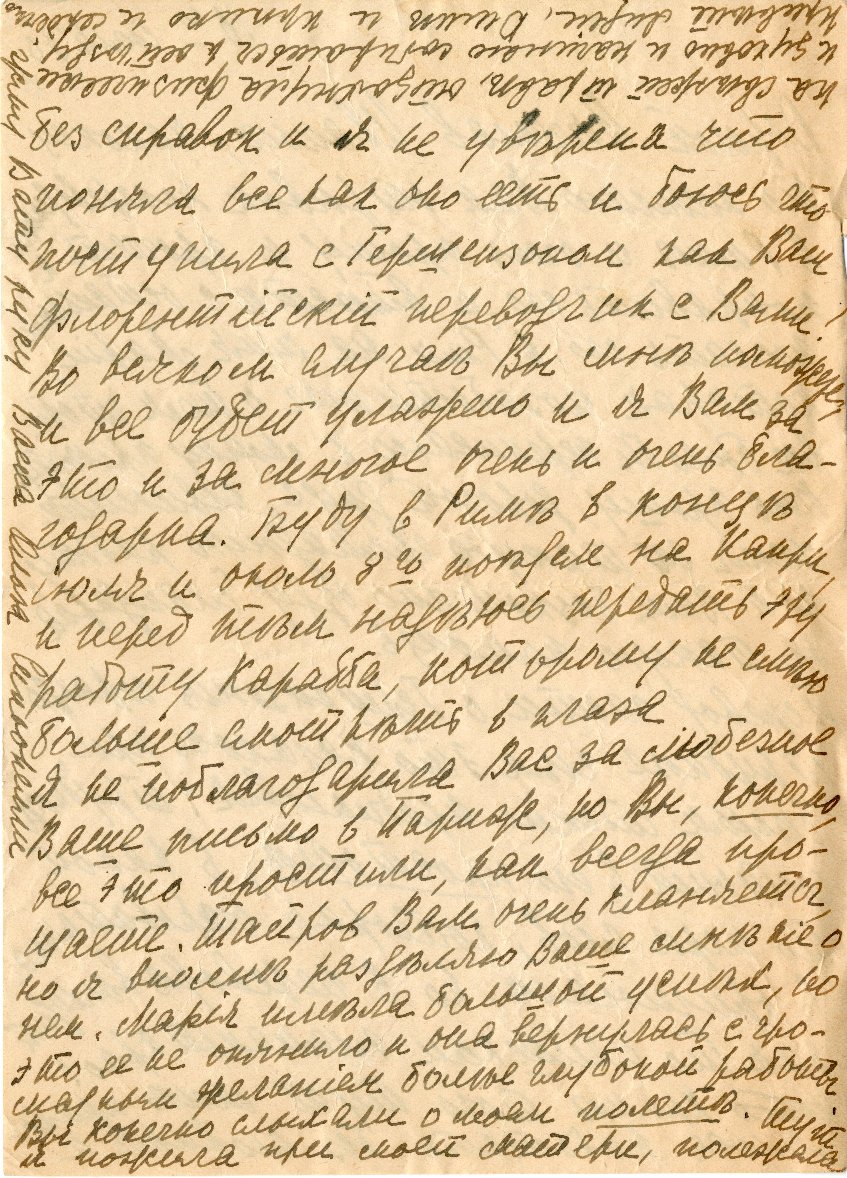 без справок и я не увѣрена что
поняла все как оно есть и боюсь что
поступила с Гершензоном как Ваш
флорентійскій переводчик с Вами!
Во всяком случаѣ Вы мнѣ поможете,
и все будет улажено и я Вам за
это и за многое очень и очень бла-
годарна. Буду в Римѣ в концѣ
іюля и около 8го поѣдем на Капри,
и перед тѣм надѣюсь передать эту
работу Карабба, которому не смѣю
больше смотрѣть в глаза
Я не поблагодарила Вас за любезное
Ваше письмо в Париж, но Вы, конечно,
все это простили, как всегда про-
щаете. Таиров Вам очень кланяется,
но я вполнѣ раздѣляю Ваше мнѣніе о
нем. Марія имѣла большой успѣх, но
это ее не опьянило и она вернулась с гро-
мадным желаніем более глубокой работы
Вы конечно слыхали о моем полетѣ. Тут
я пожила при моей матери, полежала
на свѣжей травѣ, отдохнула физически
и духовно и начинаю собираться к отъѣзду
Привѣты Лидіи, Димѣ и крѣпко и сердечно
жму Вашу руку Ваша Ольга Синьорелли